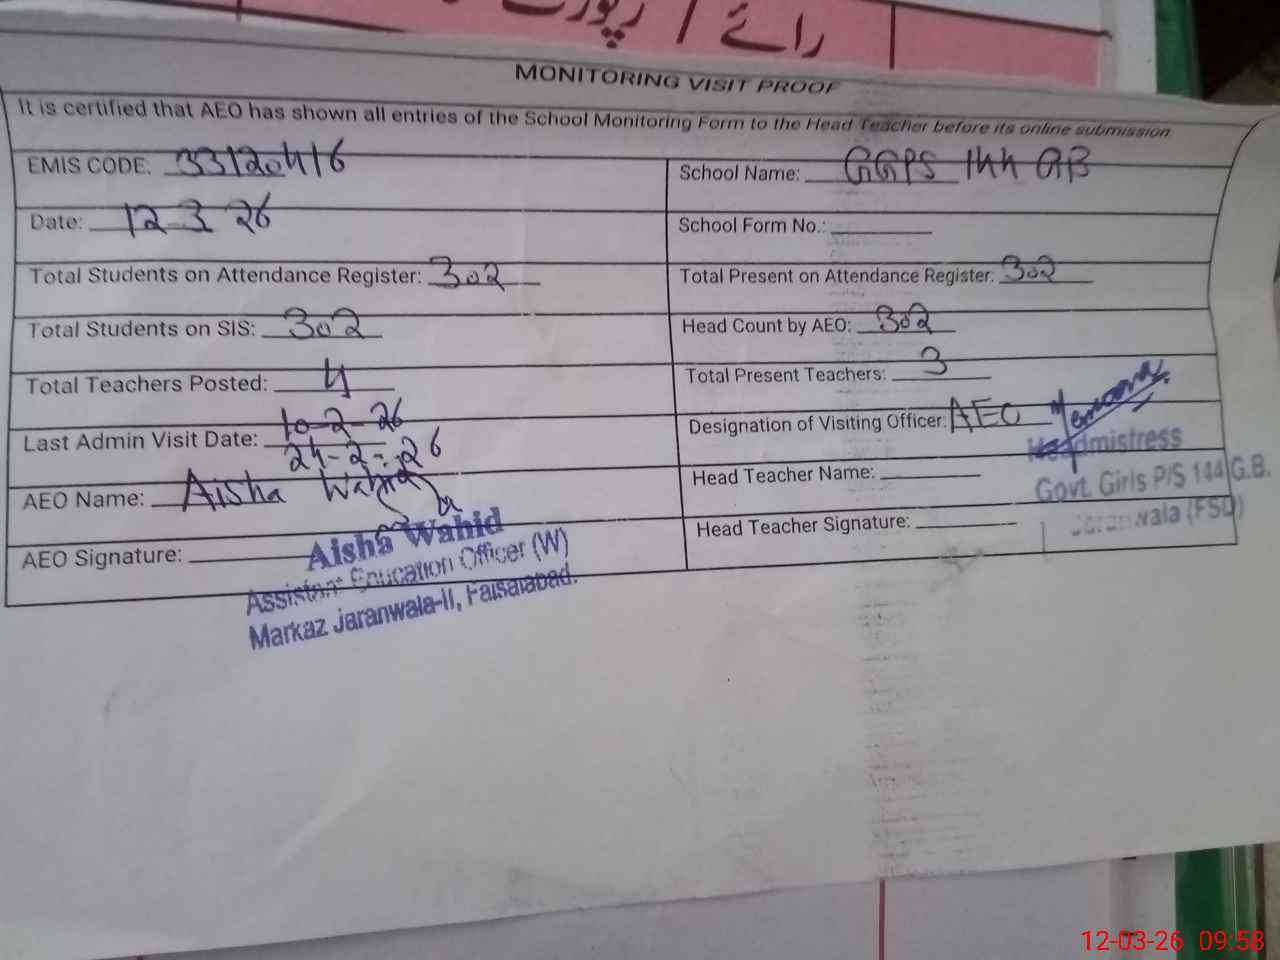 رائے / رپورٹ
MONITORING VISIT PROOF
It is certified that AEO has shown all entries of the School Monitoring Form to the Head Teacher before its online submission
EMIS CODE: 33120416
School Name: GGPS 144 GB
Date: 12 3 26
School Form No.:
Total Students on Attendance Register: 302
Total Present on Attendance Register: 302
Total Students on SIS: 302
Head Count by AEO: 302
Total Teachers Posted: 4
Total Present Teachers: 3
Last Admin Visit Date: 10-2-26
24-2-26
Designation of Visiting Officer: AEO
Headmistress
Govt. Girls P/S 144 G.B.
Jaranwala (FSD)
AEO Name: Aisha Wahid
Head Teacher Name:
AEO Signature:
Head Teacher Signature:
Aisha Wahid
Assistant Education Officer (W)
Markaz Jaranwala-II, Faisalabad.
12-03-26 09:58